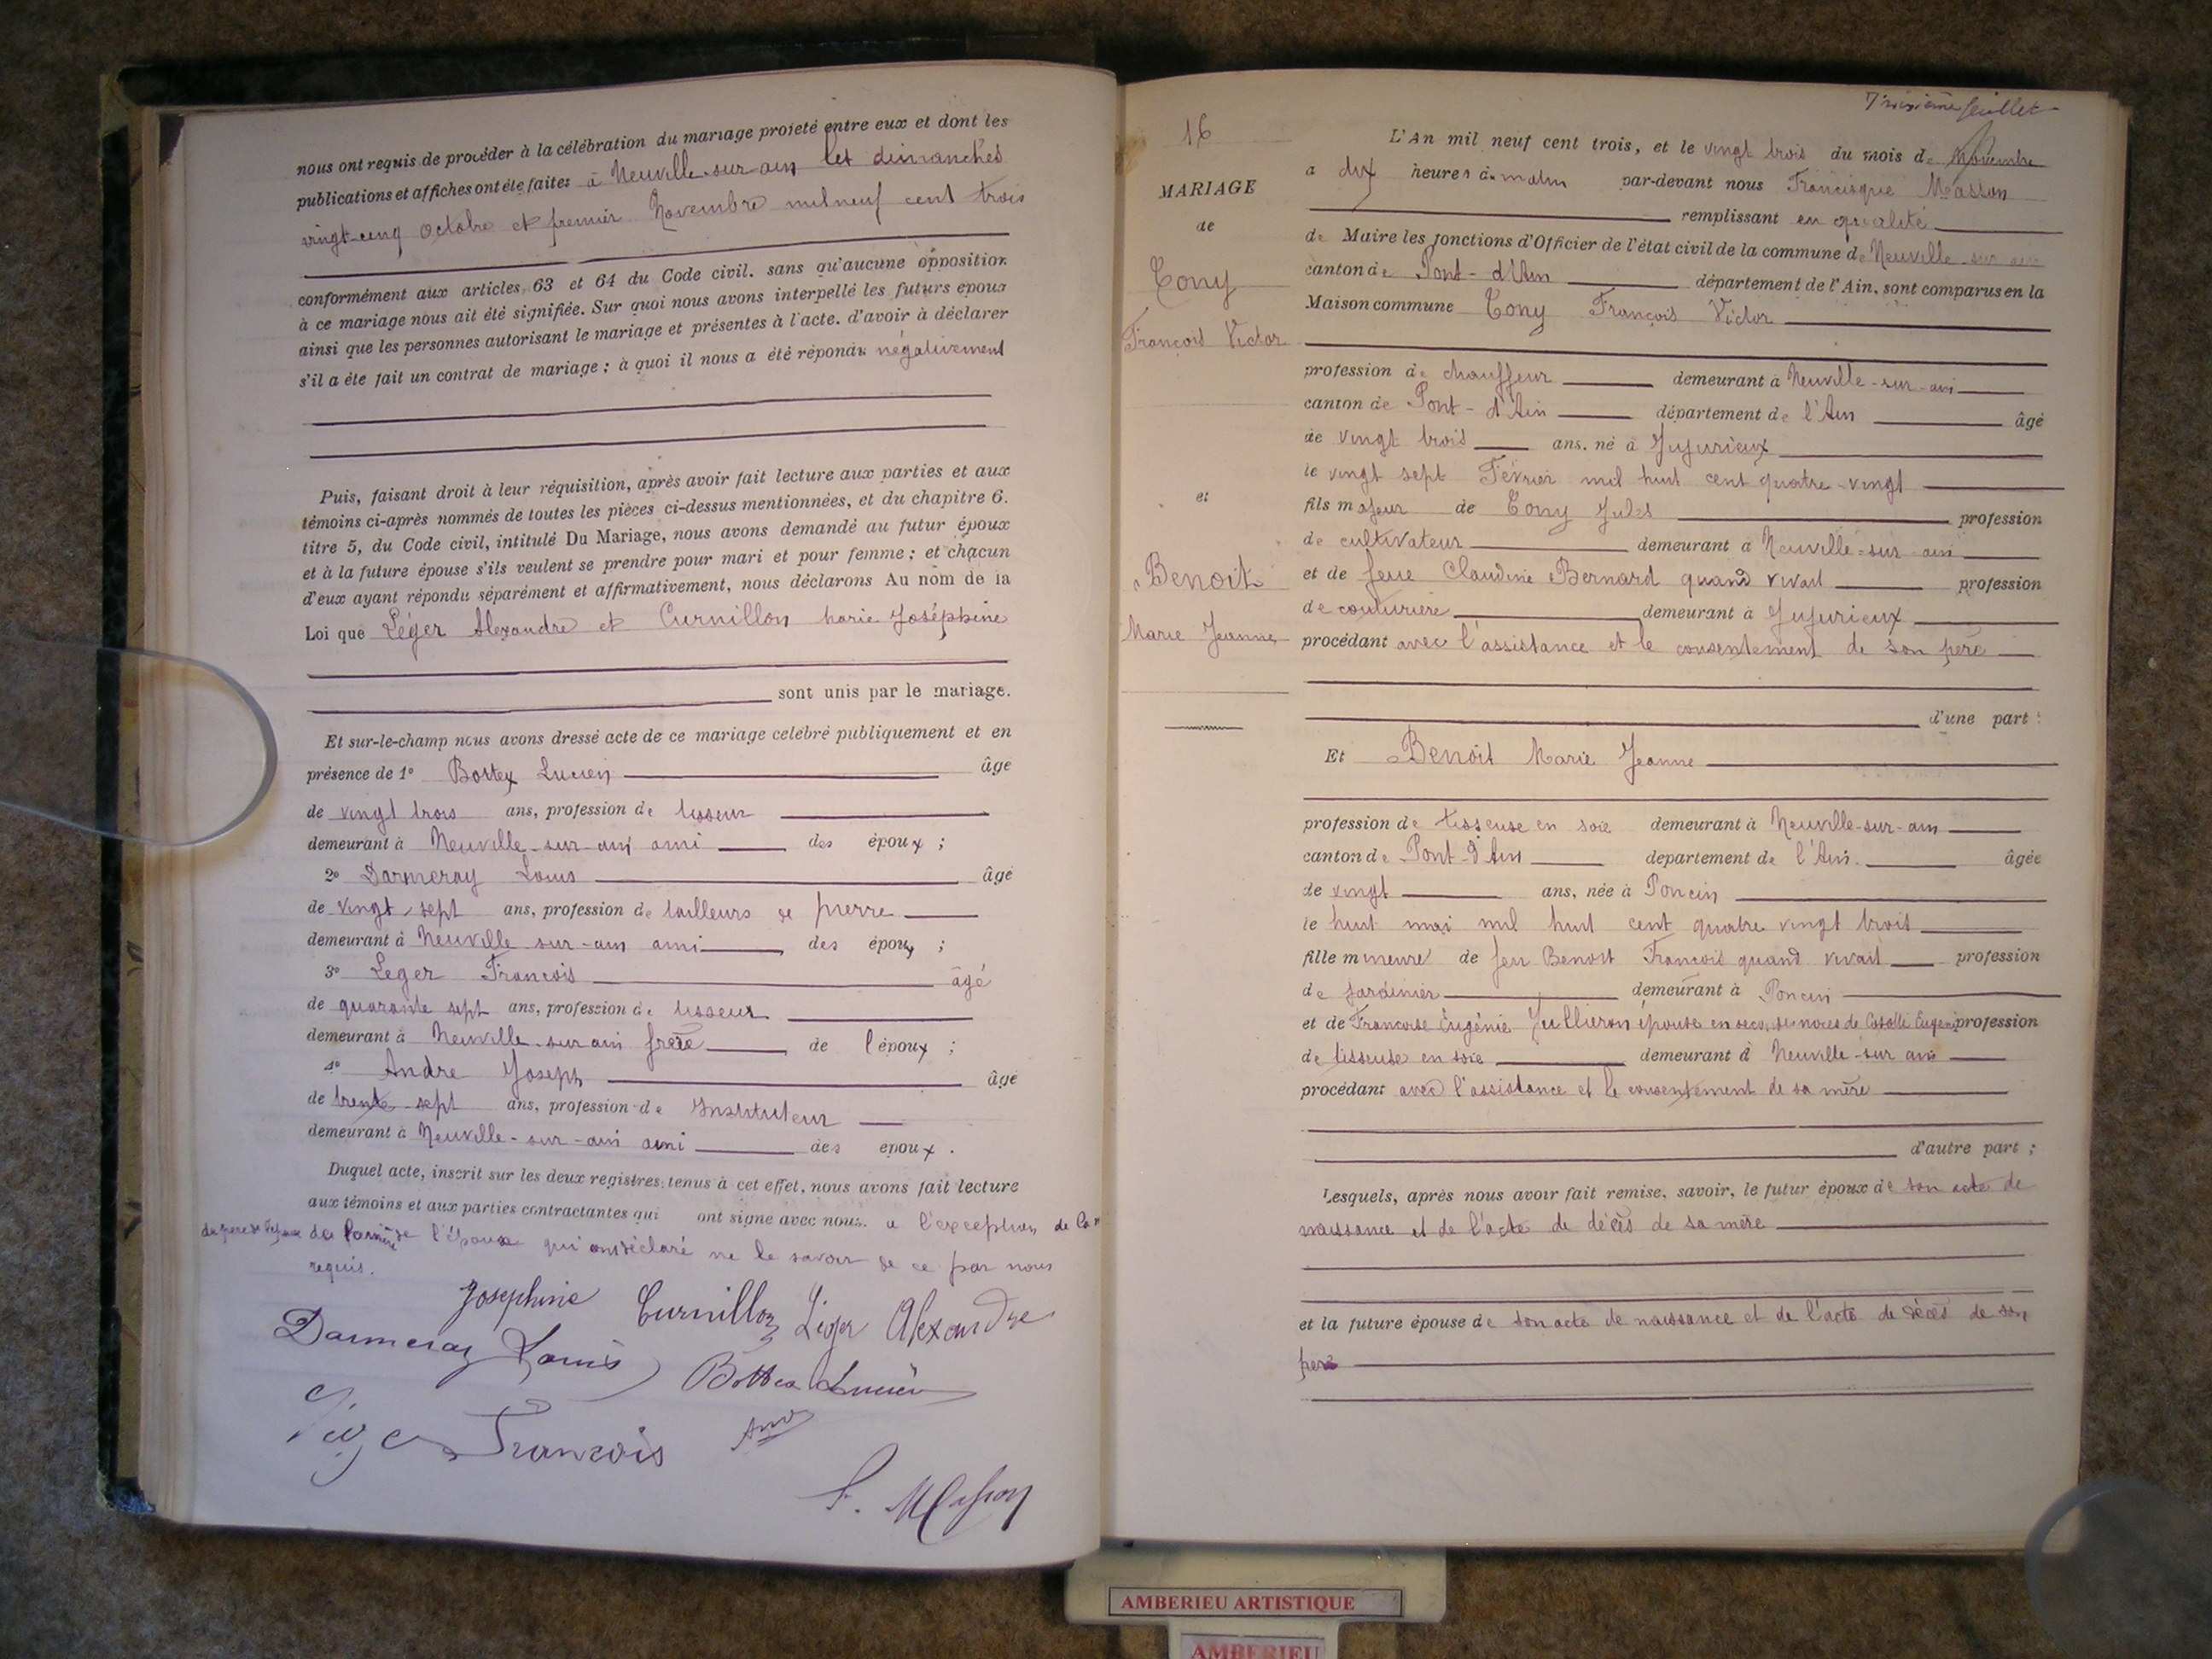 nous ont requis de procéder à la célébration du mariage projeté entre eux et dont les
publications et affiches ont été faites à Neuville-sur-ain les dimanches
vingt-cinq Octobre et premier Novembre mil neuf cent trois
conformément aux articles 63 et 64 du Code civil. sans qu'aucune opposition
à ce mariage nous ait été signifiée. Sur quoi nous avons interpellé les futurs époux
ainsi que les personnes autorisant le mariage et présentes à l'acte. d'avoir à déclarer
s'il a été fait un contrat de mariage ; à quoi il nous a été répondu négativement
Puis, faisant droit à leur réquisition, après avoir fait lecture aux parties et aux
témoins ci-après nommés de toutes les pièces ci-dessus mentionnées, et du chapitre 6.
titre 5, du Code civil, intitulé Du Mariage, nous avons demandé au futur époux
et à la future épouse s'ils veulent se prendre pour mari et pour femme ; et chacun
d'eux ayant répondu séparément et affirmativement, nous déclarons Au nom de la
Loi que Léger Alexandre et Curnillon Marie Joséphine
sont unis par le mariage.
Et sur-le-champ nous avons dressé acte de ce mariage célébré publiquement et en
présence de 1° Bottex Lucien âgé
de vingt trois ans, profession de tisseur
demeurant à Neuville-sur-ain ami des époux ;
2° Darmeray Louis âgé
de vingt-sept ans, profession de tailleurs de pierre
demeurant à Neuville sur-ain ami des époux ;
3° Leger François âgé
de quarante sept ans, profession de tisseur
demeurant à Neuville-sur ain frère de l'époux ;
4° Andre Joseph âgé
de trente-sept ans, profession de Instituteur
demeurant à Neuville-sur-ain ami des époux.
Duquel acte, inscrit sur les deux registres tenus à cet effet, nous avons fait lecture
aux témoins et aux parties contractantes qui ont signé avec nous. a l'exception de la
de l'épouse qui ont déclaré ne le savoir de ce par nous
requis.
Josephine Curnillon Léger Alexandre
Darmeray Louis Bottex Lucien
Léger François
F. Masson
Troisième feuillet
16
MARIAGE
de
Tony
François Victor
et
Benoit
Marie Jeanne
L'An mil neuf cent trois, et le vingt trois du mois de Novembre
a dix heures du matin par-devant nous Francisque Masson
remplissant en qualité
de Maire les fonctions d'Officier de l'état civil de la commune de Neuville-sur ain
canton de Pont-d'Ain département de l'Ain, sont comparus en la
Maison commune Tony François Victor
profession de chauffeur demeurant à Neuville-sur-ain
canton de Pont-d'Ain département de l'Ain âgé
de vingt trois ans. né à Jujurieux
le vingt sept Février mil huit cent quatre-vingt
fils majeur de Tony Jules profession
de cultivateur demeurant à Neuville-sur-ain
et de feue Claudine Bernard quand vivait profession
de couturière demeurant à Jujurieux
procédant avec l'assistance et le consentement de son père
d'une part :
Et Benoit Marie Jeanne
profession de tisseuse en soie demeurant à Neuville-sur-ain
canton de Pont-d'Ain département de l'Ain. âgée
de vingt ans, née à Poncin
le huit mai mil huit cent quatre vingt trois
fille mineure de feu Benoit François quand vivait profession
de jardinier demeurant à Poncin
et de Francoise Eugénie Jullieron épouse en secondes noces de profession
de tisseuse en soie demeurant à Neuville-sur ain
procédant avec l'assistance et le consentement de sa mère
d'autre part ;
Lesquels, après nous avoir fait remise, savoir, le futur époux de son acte de
naissance et de l'acte de décès de sa mère
et la future épouse de son acte de naissance et de l'acte de décès de son
père
AMBERIEU ARTISTIQUE
AMBERIEU